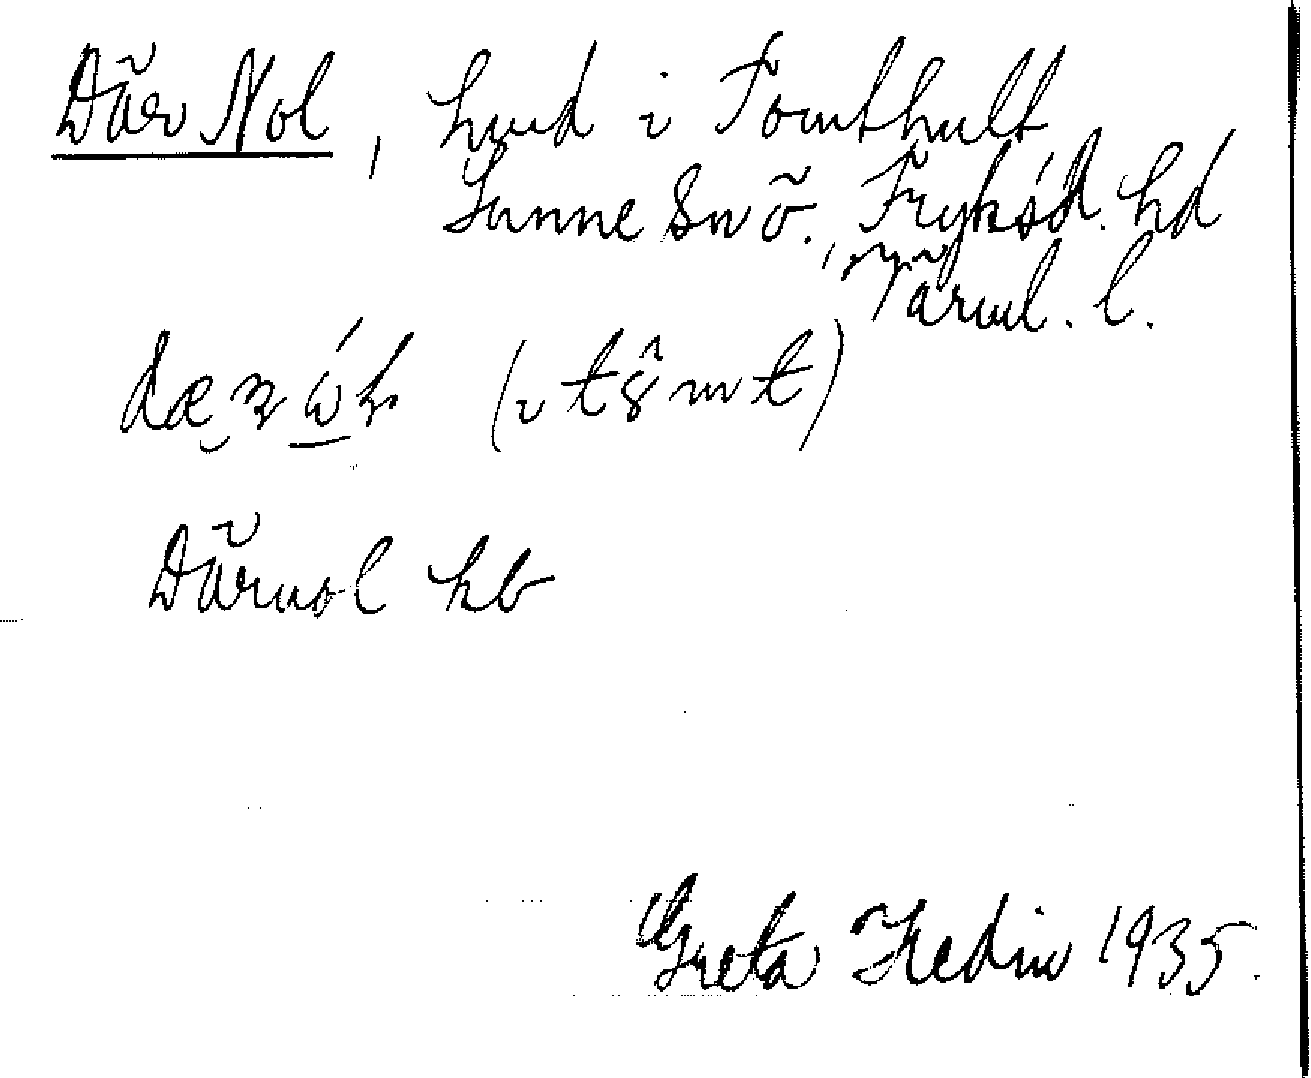 Där Nol, hmd i Tomthult
Sunne sn ö., Fryksd. hd
Värml. l.
Därnol hb
Greta Hedin 1935.